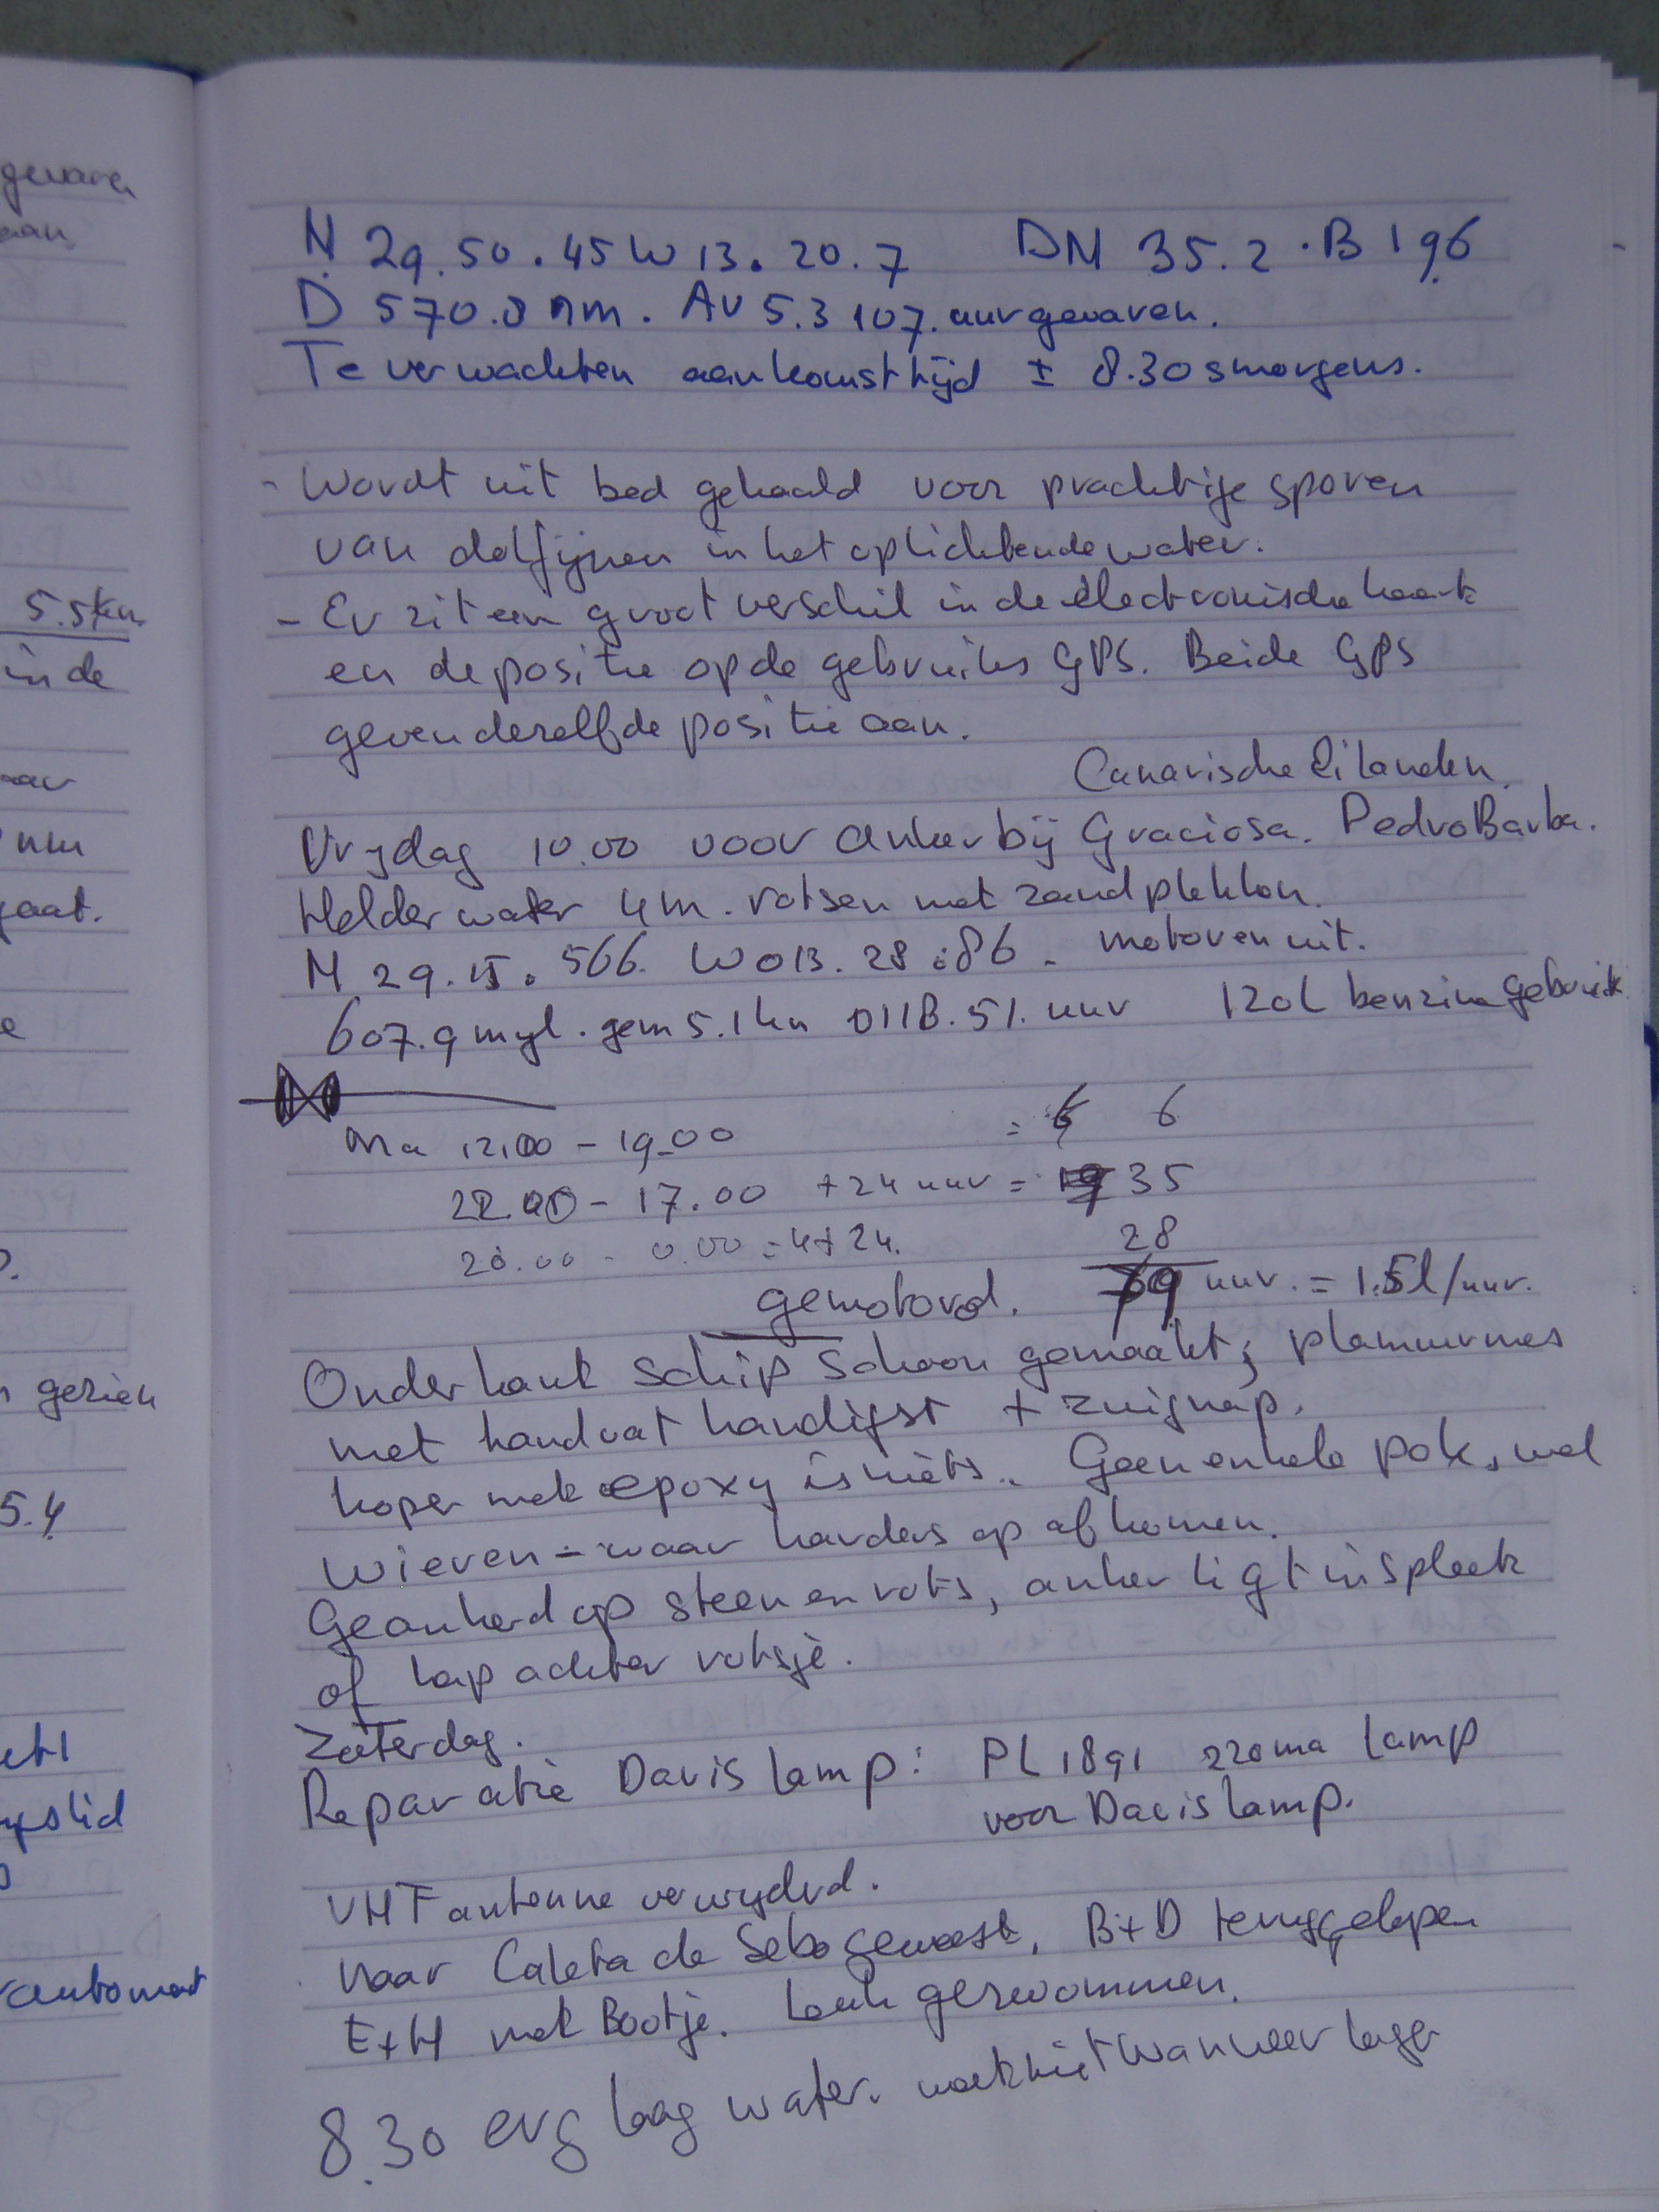 gevaren
aan
5.5km
in de
aar
nm
gaat.
e
gezien
5.4
automat
N 29.50.45 W 13.20.7 DN 35.2 . B 196
D 570.8 nm. AV 5.3 107. uur gevaren.
Te verwachten aankomsttijd ± 8.30 smorgens.
- Wordt uit bed gehaald voor prachtige sporen
van dolfijnen in het oplichtende water.
- Er zit een groot verschil in de electronische kaart
en de positie op de gebruikes GPS. Beide GPS
geven dezelfde positie aan.
Canarische Eilanden
Vrijdag 10.00 voor anker bij Graciosa. Pedro Barba.
Helder water 4m. rotsen met zandplekken.
N 29.15.566. W 013.28.86. motoren uit.
607.9 myl. gem 5.1 kn 0118.51. uur 120L benzine gebruik
Ma 12.00 - 19.00 = 6 6
22.00 - 17.00 + 24 uur = 19 35
20.00 - 0.00 = 4+24. 28
gemotord. 79 uur. = 1.5l/uur.
Onderkant schip schoon gemaakt; plamuurmes
met handvat handigst + zuignap.
koper met epoxy is niets. Geen enkele pok, wel
wieren - waar harders op af komen.
Geankerd op steen en rots, anker ligt in spleet
of hap achter rotsje.
Zaterdag.
Reparatie Davis lamp: PL 1891 220ma lamp
voor Davis lamp.
VHF antenne verwyderd.
Naar Caleta de Sebo geweest. B+D teruggelopen
E+H met Bootje. Leuk gezwommen.
8.30 erg laag water. weet niet wanneer lager